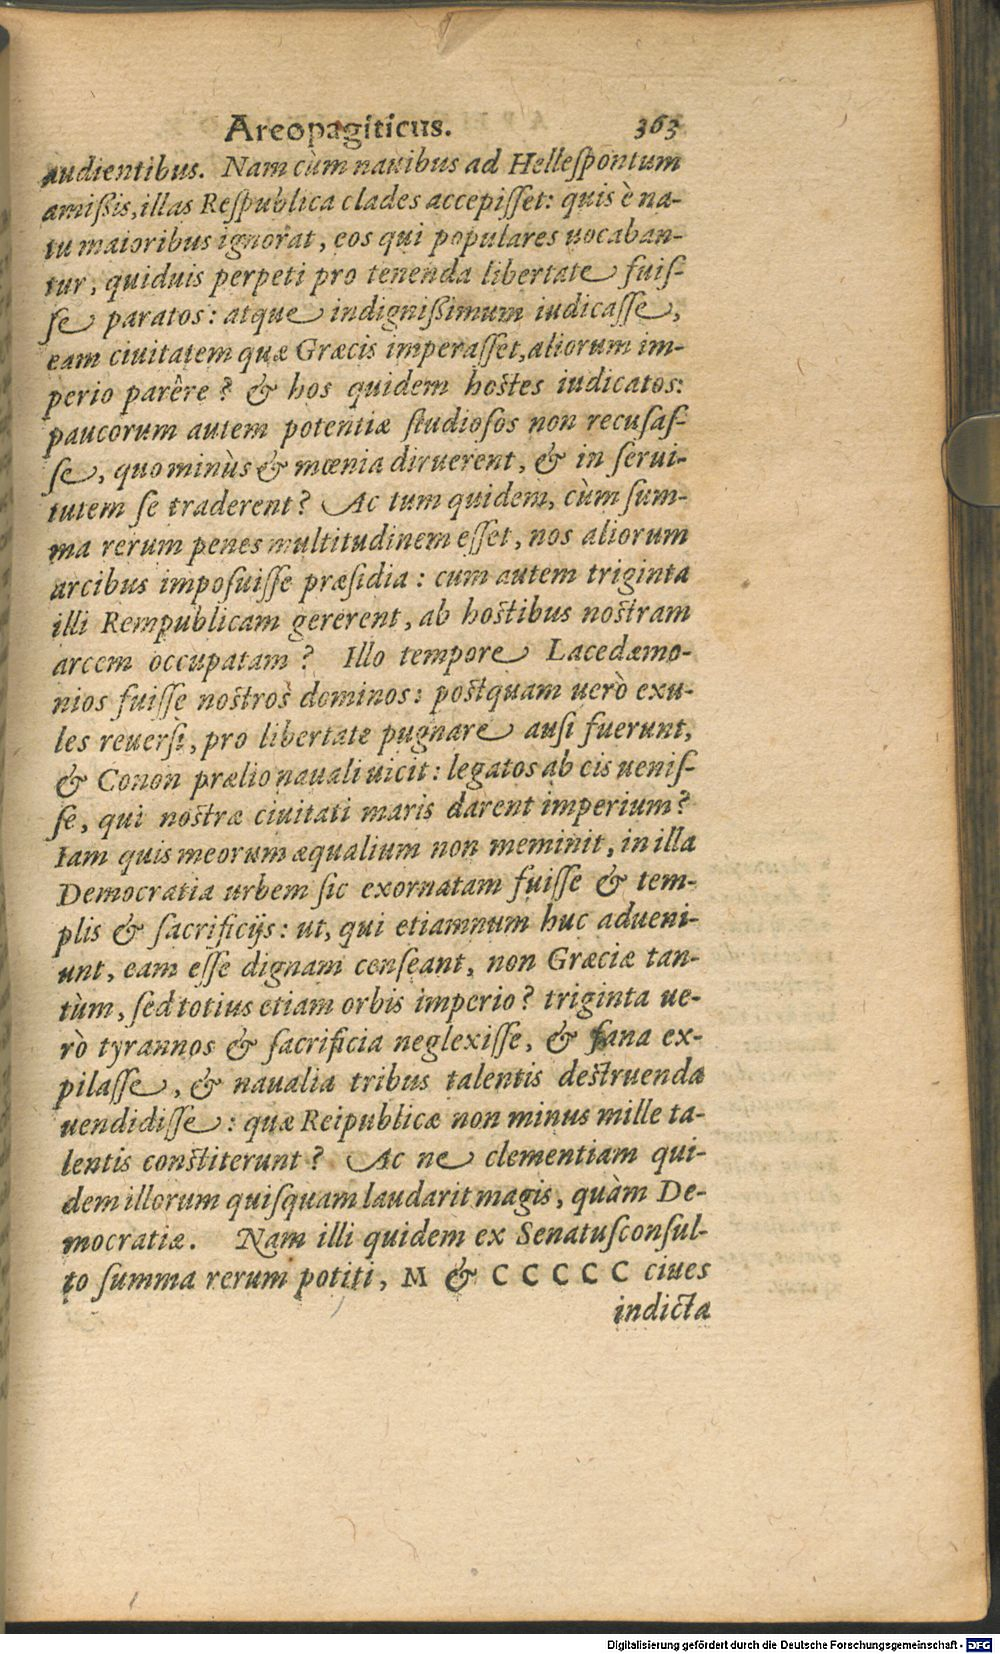 Areopagiticus. 363
audientibus. Nam cùm nauibus ad Helleſpontum
amißis, illas Reſpublica clades accepiſſet: quis è na-
tu maioribus ignorat, eos qui populares uocaban-
tur, quiduis perpeti pro tenenda libertate fuiſ-
ſe paratos: atque indignißimum iudicaſſe,
eam ciuitatem quæ Græcis imperaſſet, aliorum im-
perio parêre? & hos quidem hostes iudicatos:
paucorum autem potentiæ ſtudioſos non recuſaſ-
ſe, quo minùs & mœnia diruerent, & in ſerui-
tutem ſe traderent? Ac tum quidem, cùm ſum-
ma rerum penes multitudinem eſſet, nos aliorum
arcibus impoſuiſſe præſidia: cum autem triginta
illi Rempublicam gererent, ab hostibus nostram
arcem occupatam? Illo tempore Lacedæmo-
nios fuiſſe nostros dominos: postquam uerò exu-
les reuerſi, pro libertate pugnare auſi fuerunt,
& Conon prælio nauali uicit: legatos ab eis ueniſ-
ſe, qui nostræ ciuitati maris darent imperium?
Iam quis meorum æqualium non meminit, in illa
Democratia urbem ſic exornatam fuiſſe & tem-
plis & ſacrificijs: ut, qui etiamnum huc adueni-
unt, eam eſſe dignam cenſeant, non Græciæ tan-
tùm, ſed totius etiam orbis imperio? triginta ue-
rò tyrannos & ſacrificia neglexiſſe, & fana ex-
pilaſſe, & naualia tribus talentis destruenda
uendidiſſe: quæ Reipublicæ non minus mille ta-
lentis constiterunt? Ac ne clementiam qui-
dem illorum quiſquam laudarit magis, quàm De-
mocratiæ. Nam illi quidem ex Senatuſconſul-
to ſumma rerum potiti, M & C C C C C ciues
indicta
Digitalisierung gefördert durch die Deutsche Forschungsgemeinschaft - DFG